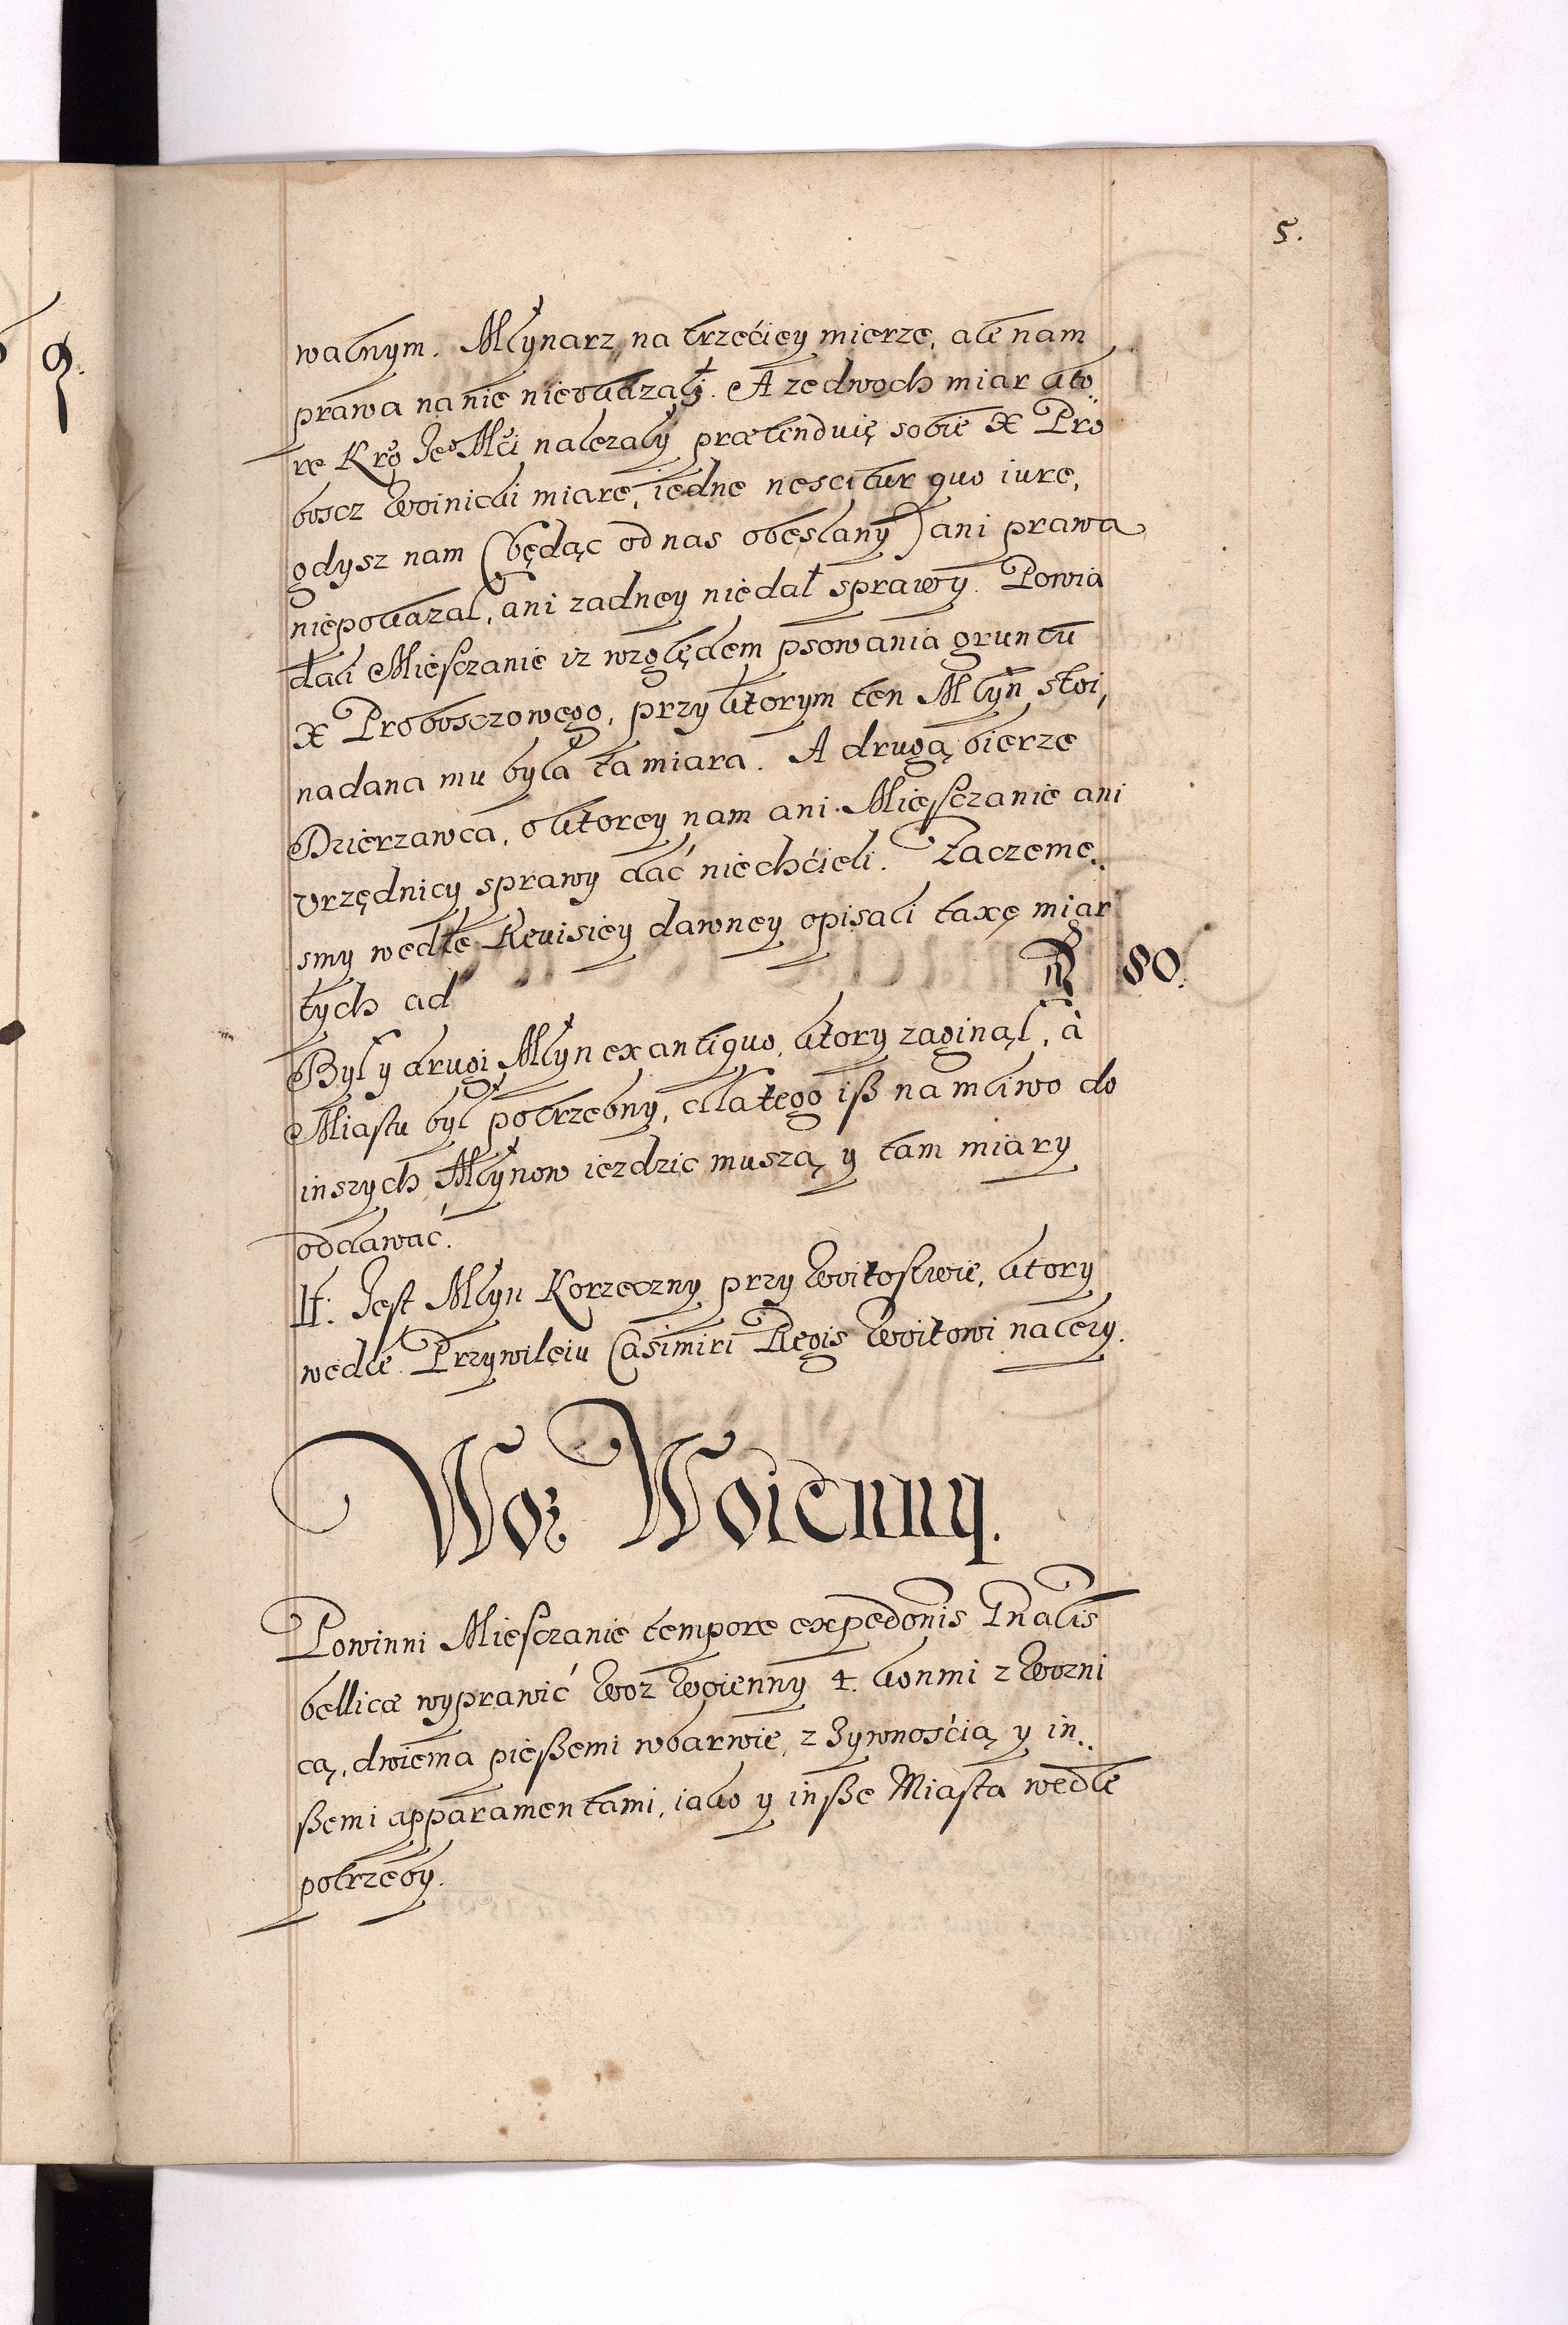 5.
walnym. Młynarz na trzećiey mierze, ale nam
prawa na nie nieukazał. A ze dwoch miar kto
re Kro Je° Mći nalezały prætenduię sobie X Pro
boscz Woinicki miarę, iedne nescitur quo iure,
gdysz nam (będąc od nas obesłany) ani prawa
niepokazał, ani zadney niedał sprawy. Powia
dali Miesczanie iz względem psowania gruntu
X Proboszczowego, przy ktorym ten Młyn stoi,
nadana mu była ta miara. A drugą bierze
Dzierzawca, o ktorey nam ani Miesczanie ani
Vrzędnicy sprawy dać niechćieli. Zaczeme..
smy wedle Reuisiey dawney opisali taxę miar
tych ad 80.
Był y drugi Młyn ex antiquo, ktory zaginął, à
Miastu był potrzebny, dlatego iß na mliwo do
inszych Młynow iezdzic muszą y tam miary
oddawać.
It: Jest Młyn Korzeczny przy Woitostwie, ktory
wedle Przywileiu Casimiri Regis Woitowi nalezy.
Woz Woienny.
Powinni Miesczanie tempore expedonis Gnalis
bellicæ wyprawić Woz Woienny 4. konmi z Wozni
cą, dwiema pießemi wbarwie, z Zywnośćią y in..
ßemi apparamentami, iako y inße Miasta wedle
potrzeby.